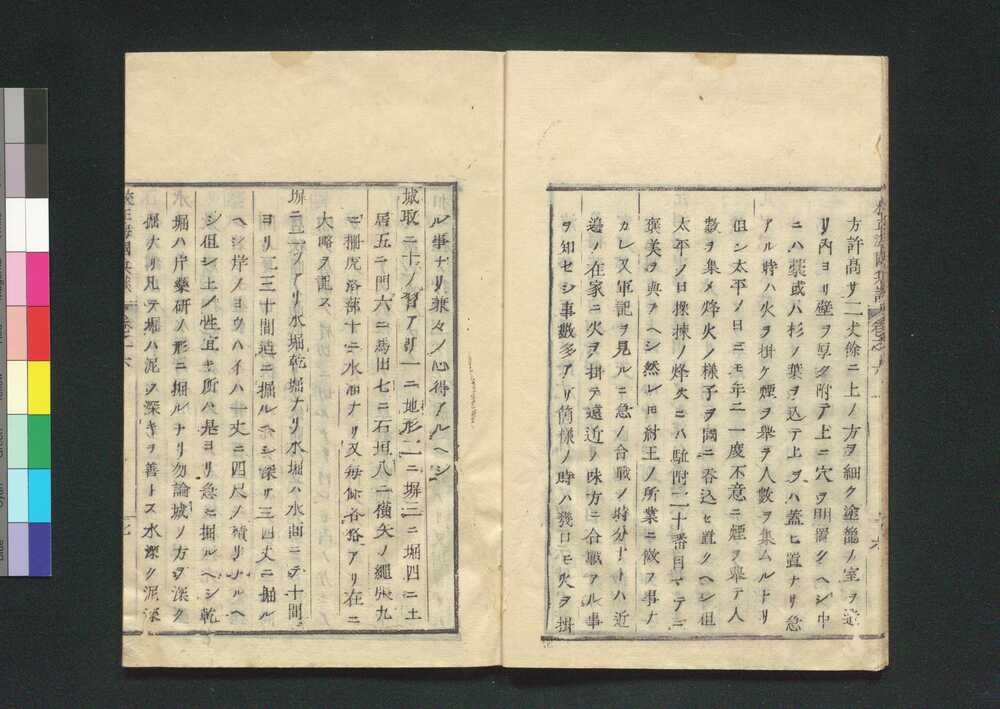 方許高サ二丈餘ニ上ノ方ヲ細ク塗籠ノ室ヲ造
リ內ヨリ壁ヲ厚ク附テ上ニ穴ヲ明置クヘシ中
ニハ藁或ハ杉ノ葉ヲ込テ上ヲハ蓋ヒ置ナリ急
アル時ハ火ヲ掛ケ煙ヲ舉テ人數ヲ集ムルトリ
但シ太平ノ日ニモ年ニ一度不意ニ煙ヲ舉テ人
數ヲ集メ烽火ノ樣子ヲ國ニ吞込セ置クヘシ但
太平ノ日操揀ノ烽火ニハ馳附二十番目マテニ
褒美ヲ與アヘシ然レ𪜈紂王ノ所業ニ倣ヲ事ナ
カレ又軍記ヲ見ルニ急ノ合戰ノ時分ナトハ近
邊ノ在家ニ火ヲ掛テ遠近ノ味方ニ合戰アル事
ヲ知セシ事數多アリ箇樣ノ時ハ幾口モ火ヲ掛
ル事ナリ兼々ノ心得アルヘシ
城取ニ十ノ習アリ一ニ地形二ニ塀三ニ堀四ニ土
居五ニ門六ニ馬出七ニ石垣八ニ橫矢ノ繩張九
ニ柵虎落部十ニ水油ナリ又每條各格アリ在ニ
大略ヲ記ス
堀ニ二ツアリ水堀乾堀ナリ水堀ハ水間ニテ十間
ヨリ二三十間迄ニ掘ルヘシ深サ三四丈ニ掘ル
ヘシ岸ノヨウハイハ一丈ニ四尺ノ積リナルヘ
シ但シ土ノ性宜キ所ハ是ヨリ急ニ掘ルヘシ乾
水堀ハ片藥研ノ形ニ堀ルナリ勿論城ノ方ヲ深ク
掘ナリ凡テ堀ハ泥ノ深キヲ善トス水深ク泥深